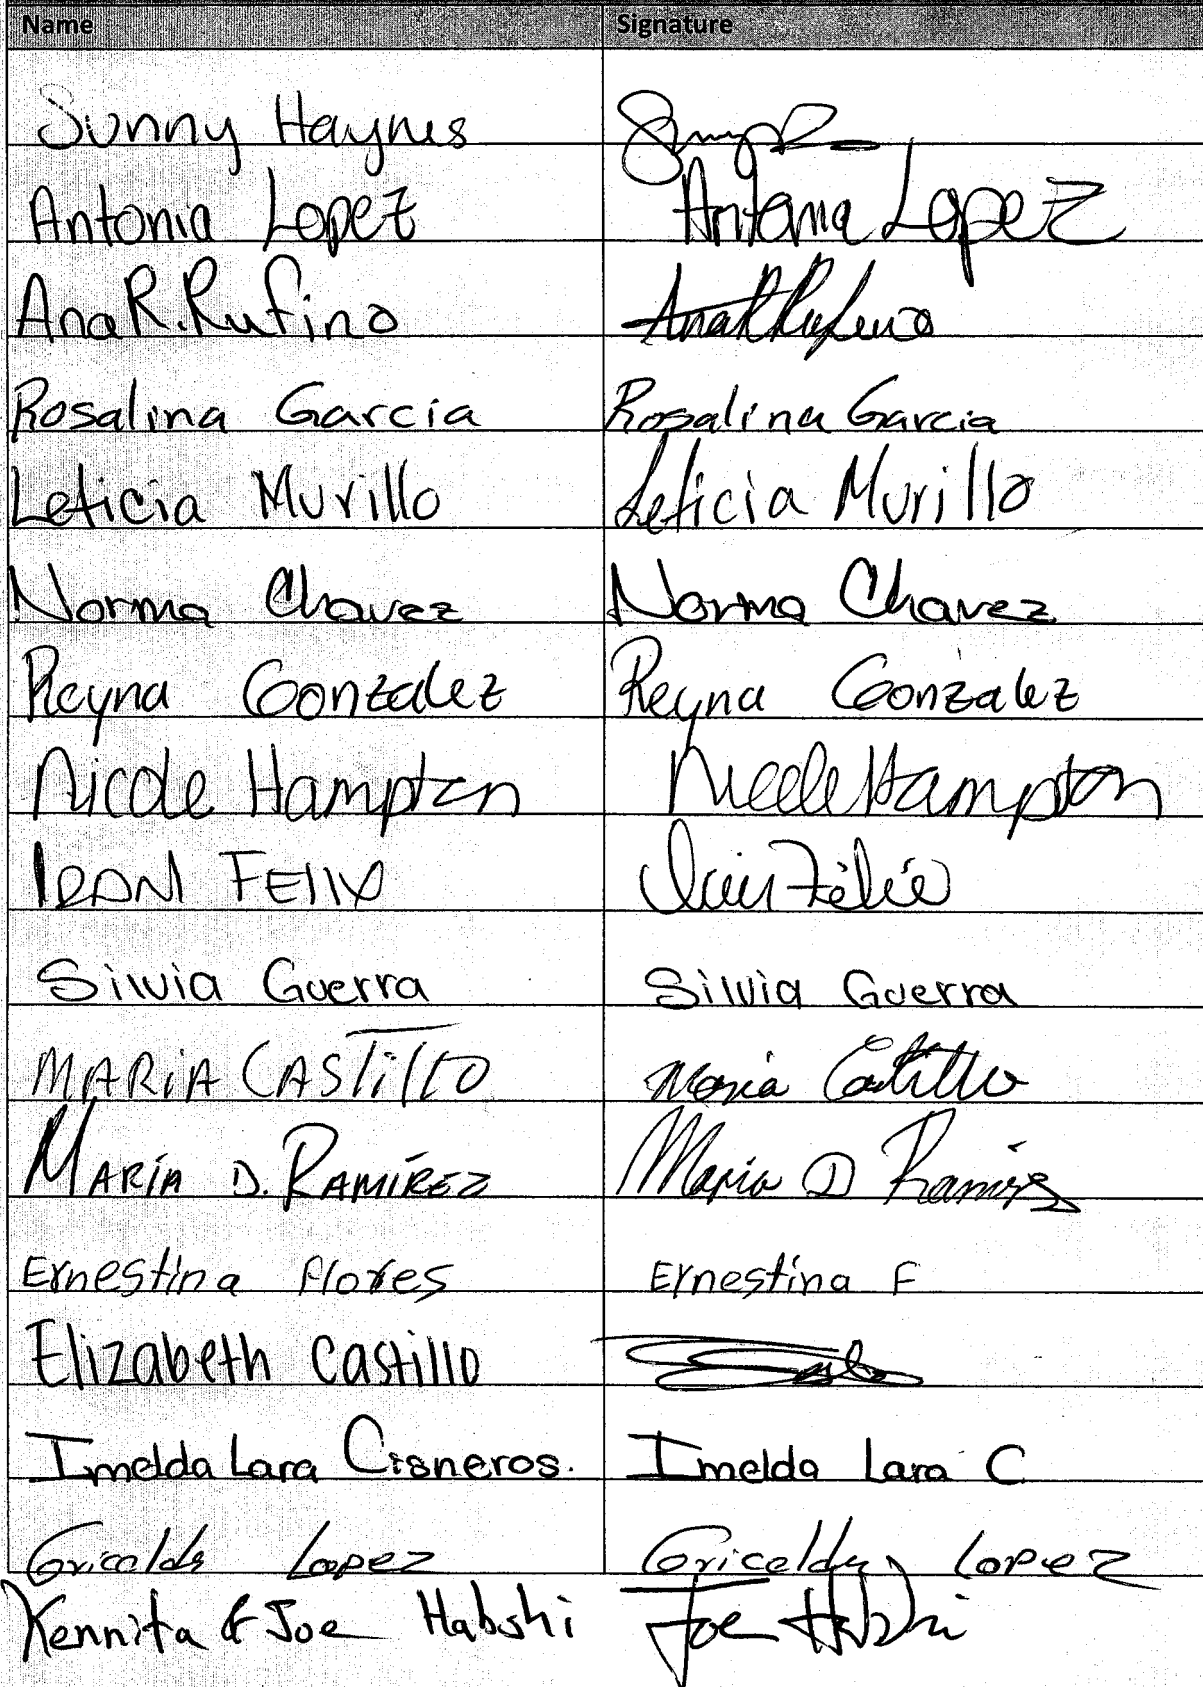 Name Signature
Sunny Haynes
Antonia Lopez Antonia Lopez
Ana R. Rufino Ana R Rufino
Rosalina Garcia Rosalina Garcia
Leticia Murillo Leticia Murillo
Norma Chavez Norma Chavez
Reyna Gonzalez Reyna Gonzalez
Nicole Hampton Nicole Hampton
FELIX
Silvia Guerra Silvia Guerra
MARIA CASTILLO Maria Castillo
MARÍA D. RAMÍREZ Maria D Ramirez
Ernestina Flores Ernestina F
Elizabeth Castillo
Imelda Lara Cisneros. Imelda Lara C
Gricelda Lopez Gricelda Lopez
Kennita & Joe Habshi Joe Habshi